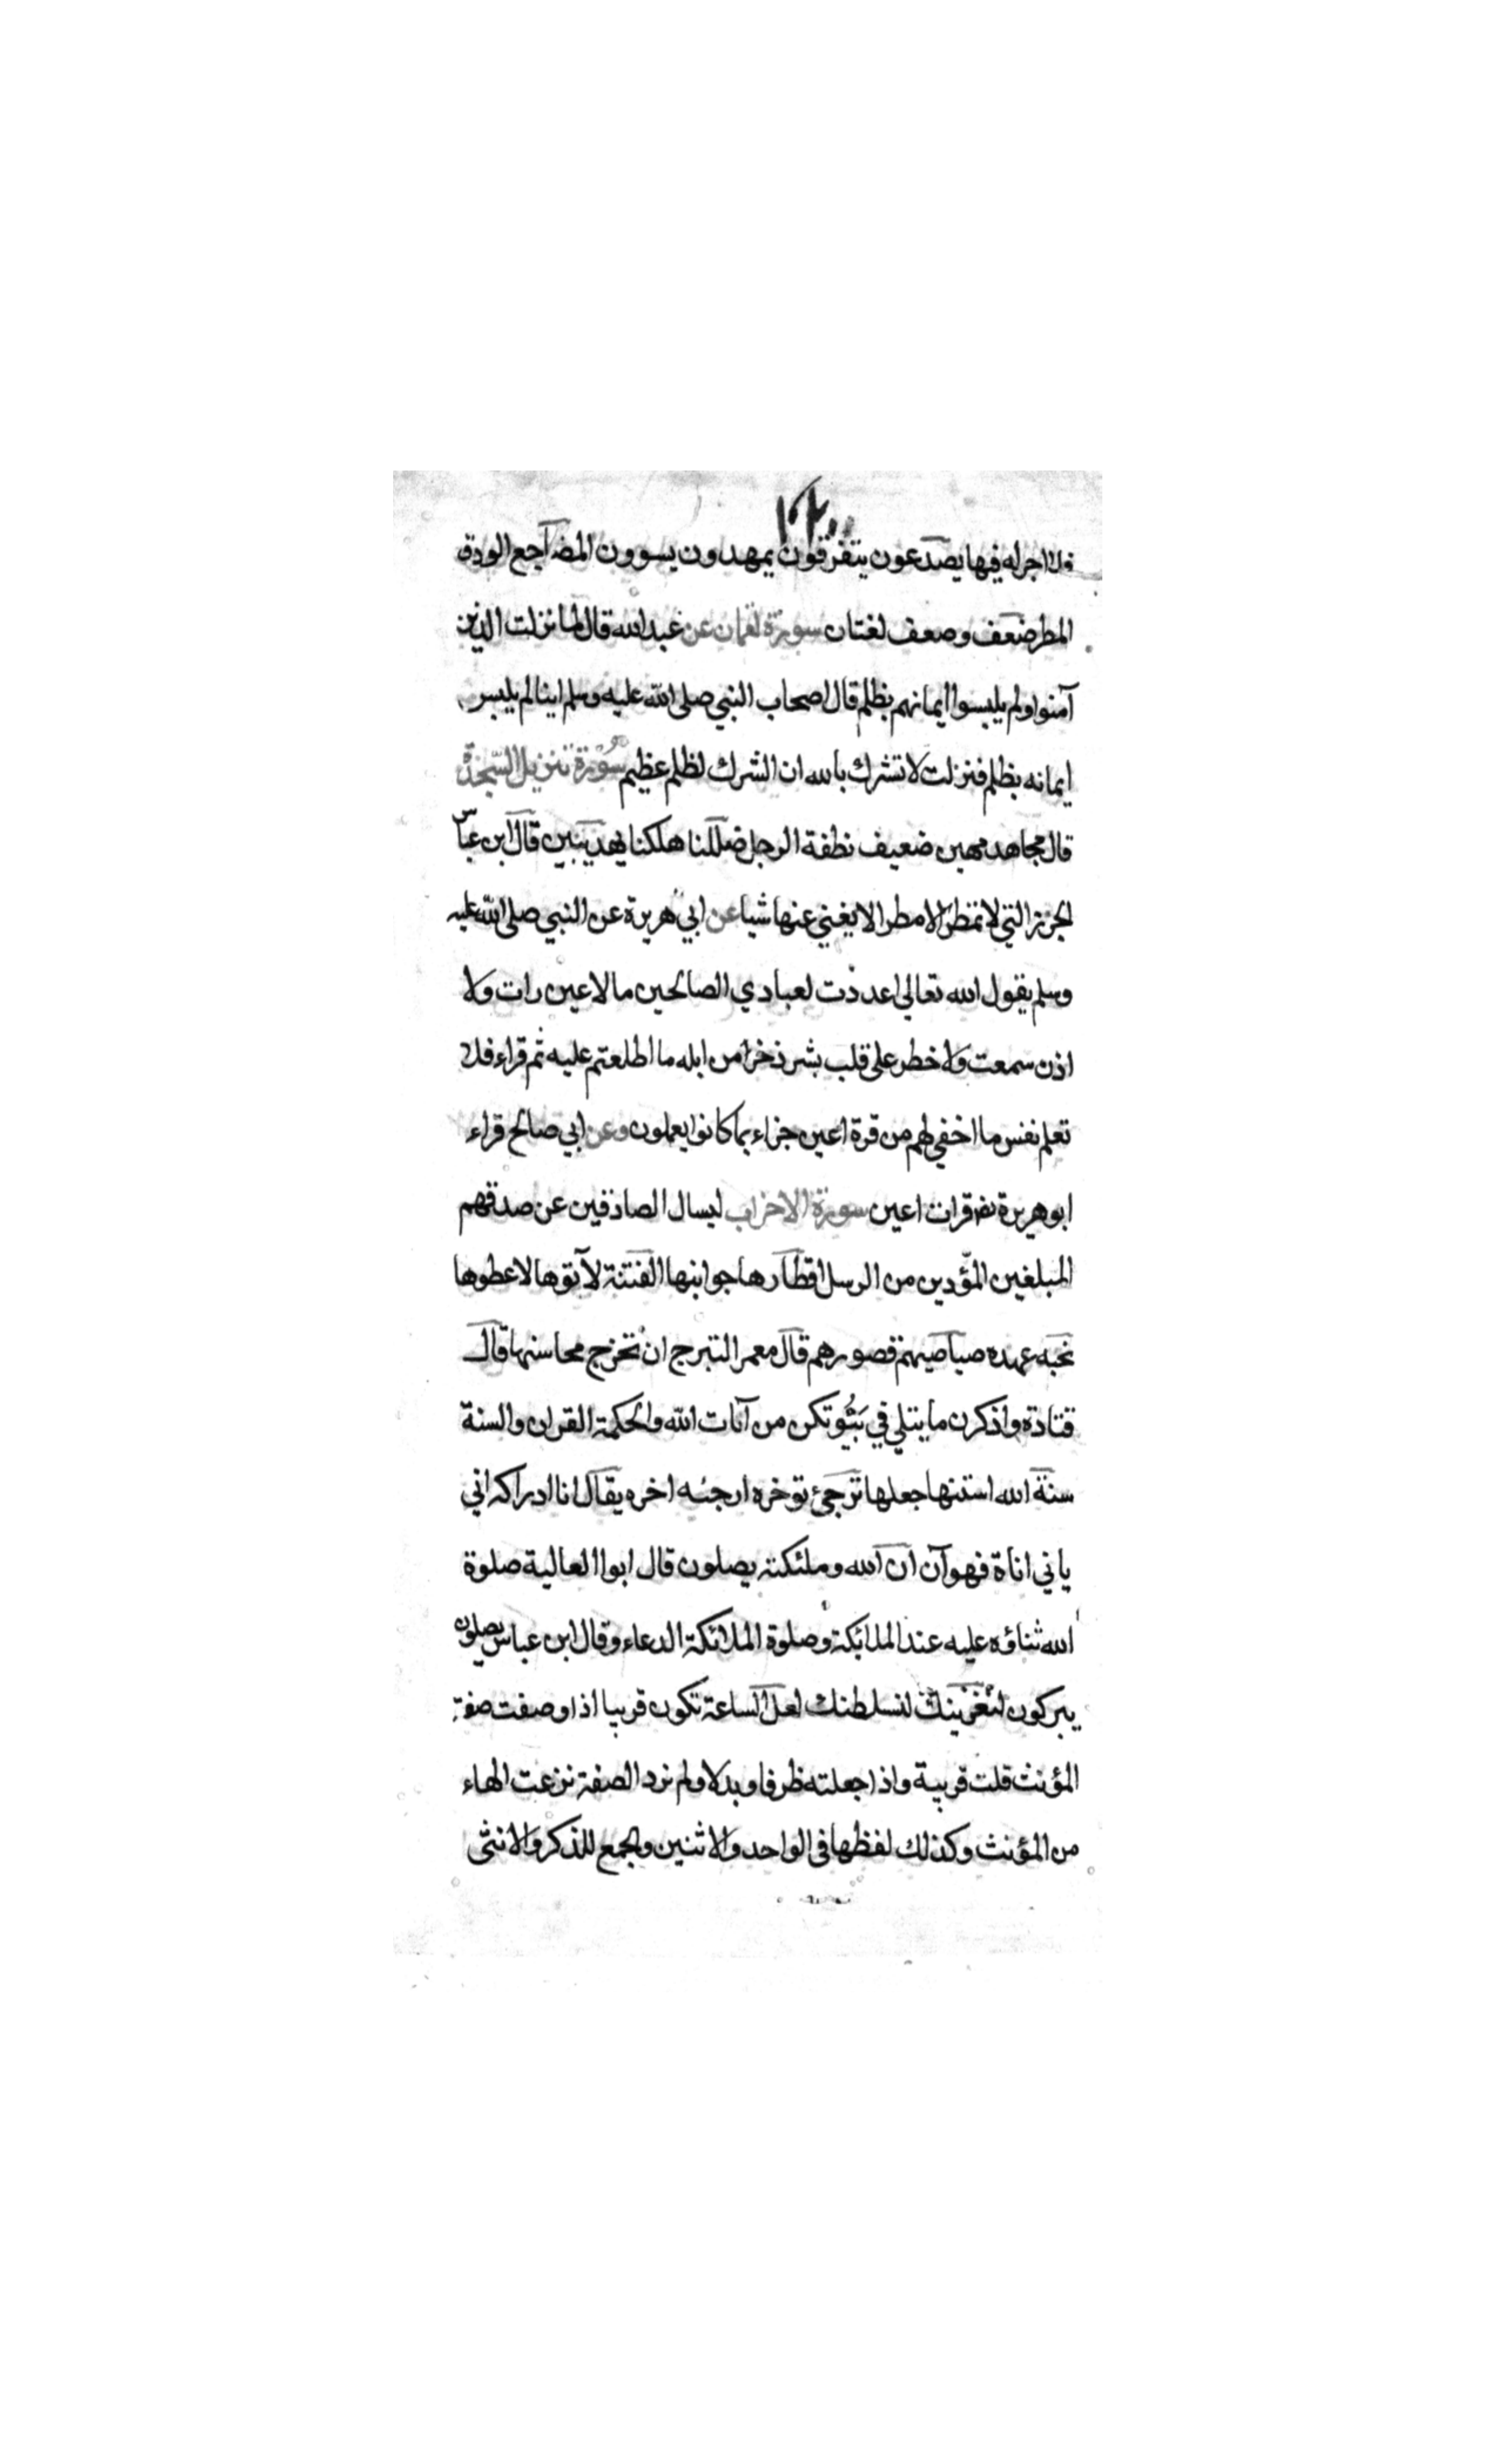 ١٠٢
فلا اجر له فيها يصدعون يتفرقون يمهدون يسوون المضاجع الودق
المطر ضعف وضعف لغتان سورة لقمان عن عبد الله قال لما نزلت الذين
آمنوا ولم يلبسوا ايمانهم بظلم قال اصحاب النبي صلى الله عليه وسلم اينا لم يلبس
ايمانه بظلم فنزلت لا تشرك بالله ان الشرك لظلم عظيم سورة تنزيل السجدة
قال مجاهد مهين ضعيف نطفة الرجل ضللنا هلكنا يهد يبين قال ابن عباس
الجرز التي لا تمطر الا مطر الا يغني عنها شيا عن ابي هريرة عن النبي صلى الله عليه
وسلم يقول الله تعالى اعددت لعبادي الصالحين ما لا عين رات ولا
اذن سمعت ولا خطر على قلب بشر ذخرا من ابله ما اطلعتم عليه ثم قراء فلا
تعلم نفس ما اخفي لهم من قرة اعين جزاء بما كانوا يعملون وعن ابي صالح قراء
ابو هريرة قرات اعين سورة الاحزاب ليسال الصادقين عن صدقهم
المبلغين المؤدين من الرسل اقطارها جوانبها الفتنة لآتوها لاعطوها
نحبه عهده صياصيهم قصورهم قال معمر التبرج ان تخرج محاسنها قال
قتادة واذكرن ما يتلى في بيوتكن من آيات الله والحكمة القران والسنة
سنة الله استنها جعلها ترجئ توخره ارجئه اخره يقال انا ادراكه اني
ياني اناة فهو آن ان الله وملئكته يصلون قال ابوا العالية صلوة
الله ثناؤه عليه عند الملائكة وصلوة الملائكة الدعاء وقال ابن عباس يصلون
يبركون لنغرينك لنسلطنك لعل الساعة تكون قريبا اذا وصفت صفة
المؤنث قلت قريبة واذا جعلته ظرفا وبدلا ولم نرد الصفة نزعت الهاء
من المؤنث وكذلك لفظها في الواحد والاثنين والجمع للذكر والانثى